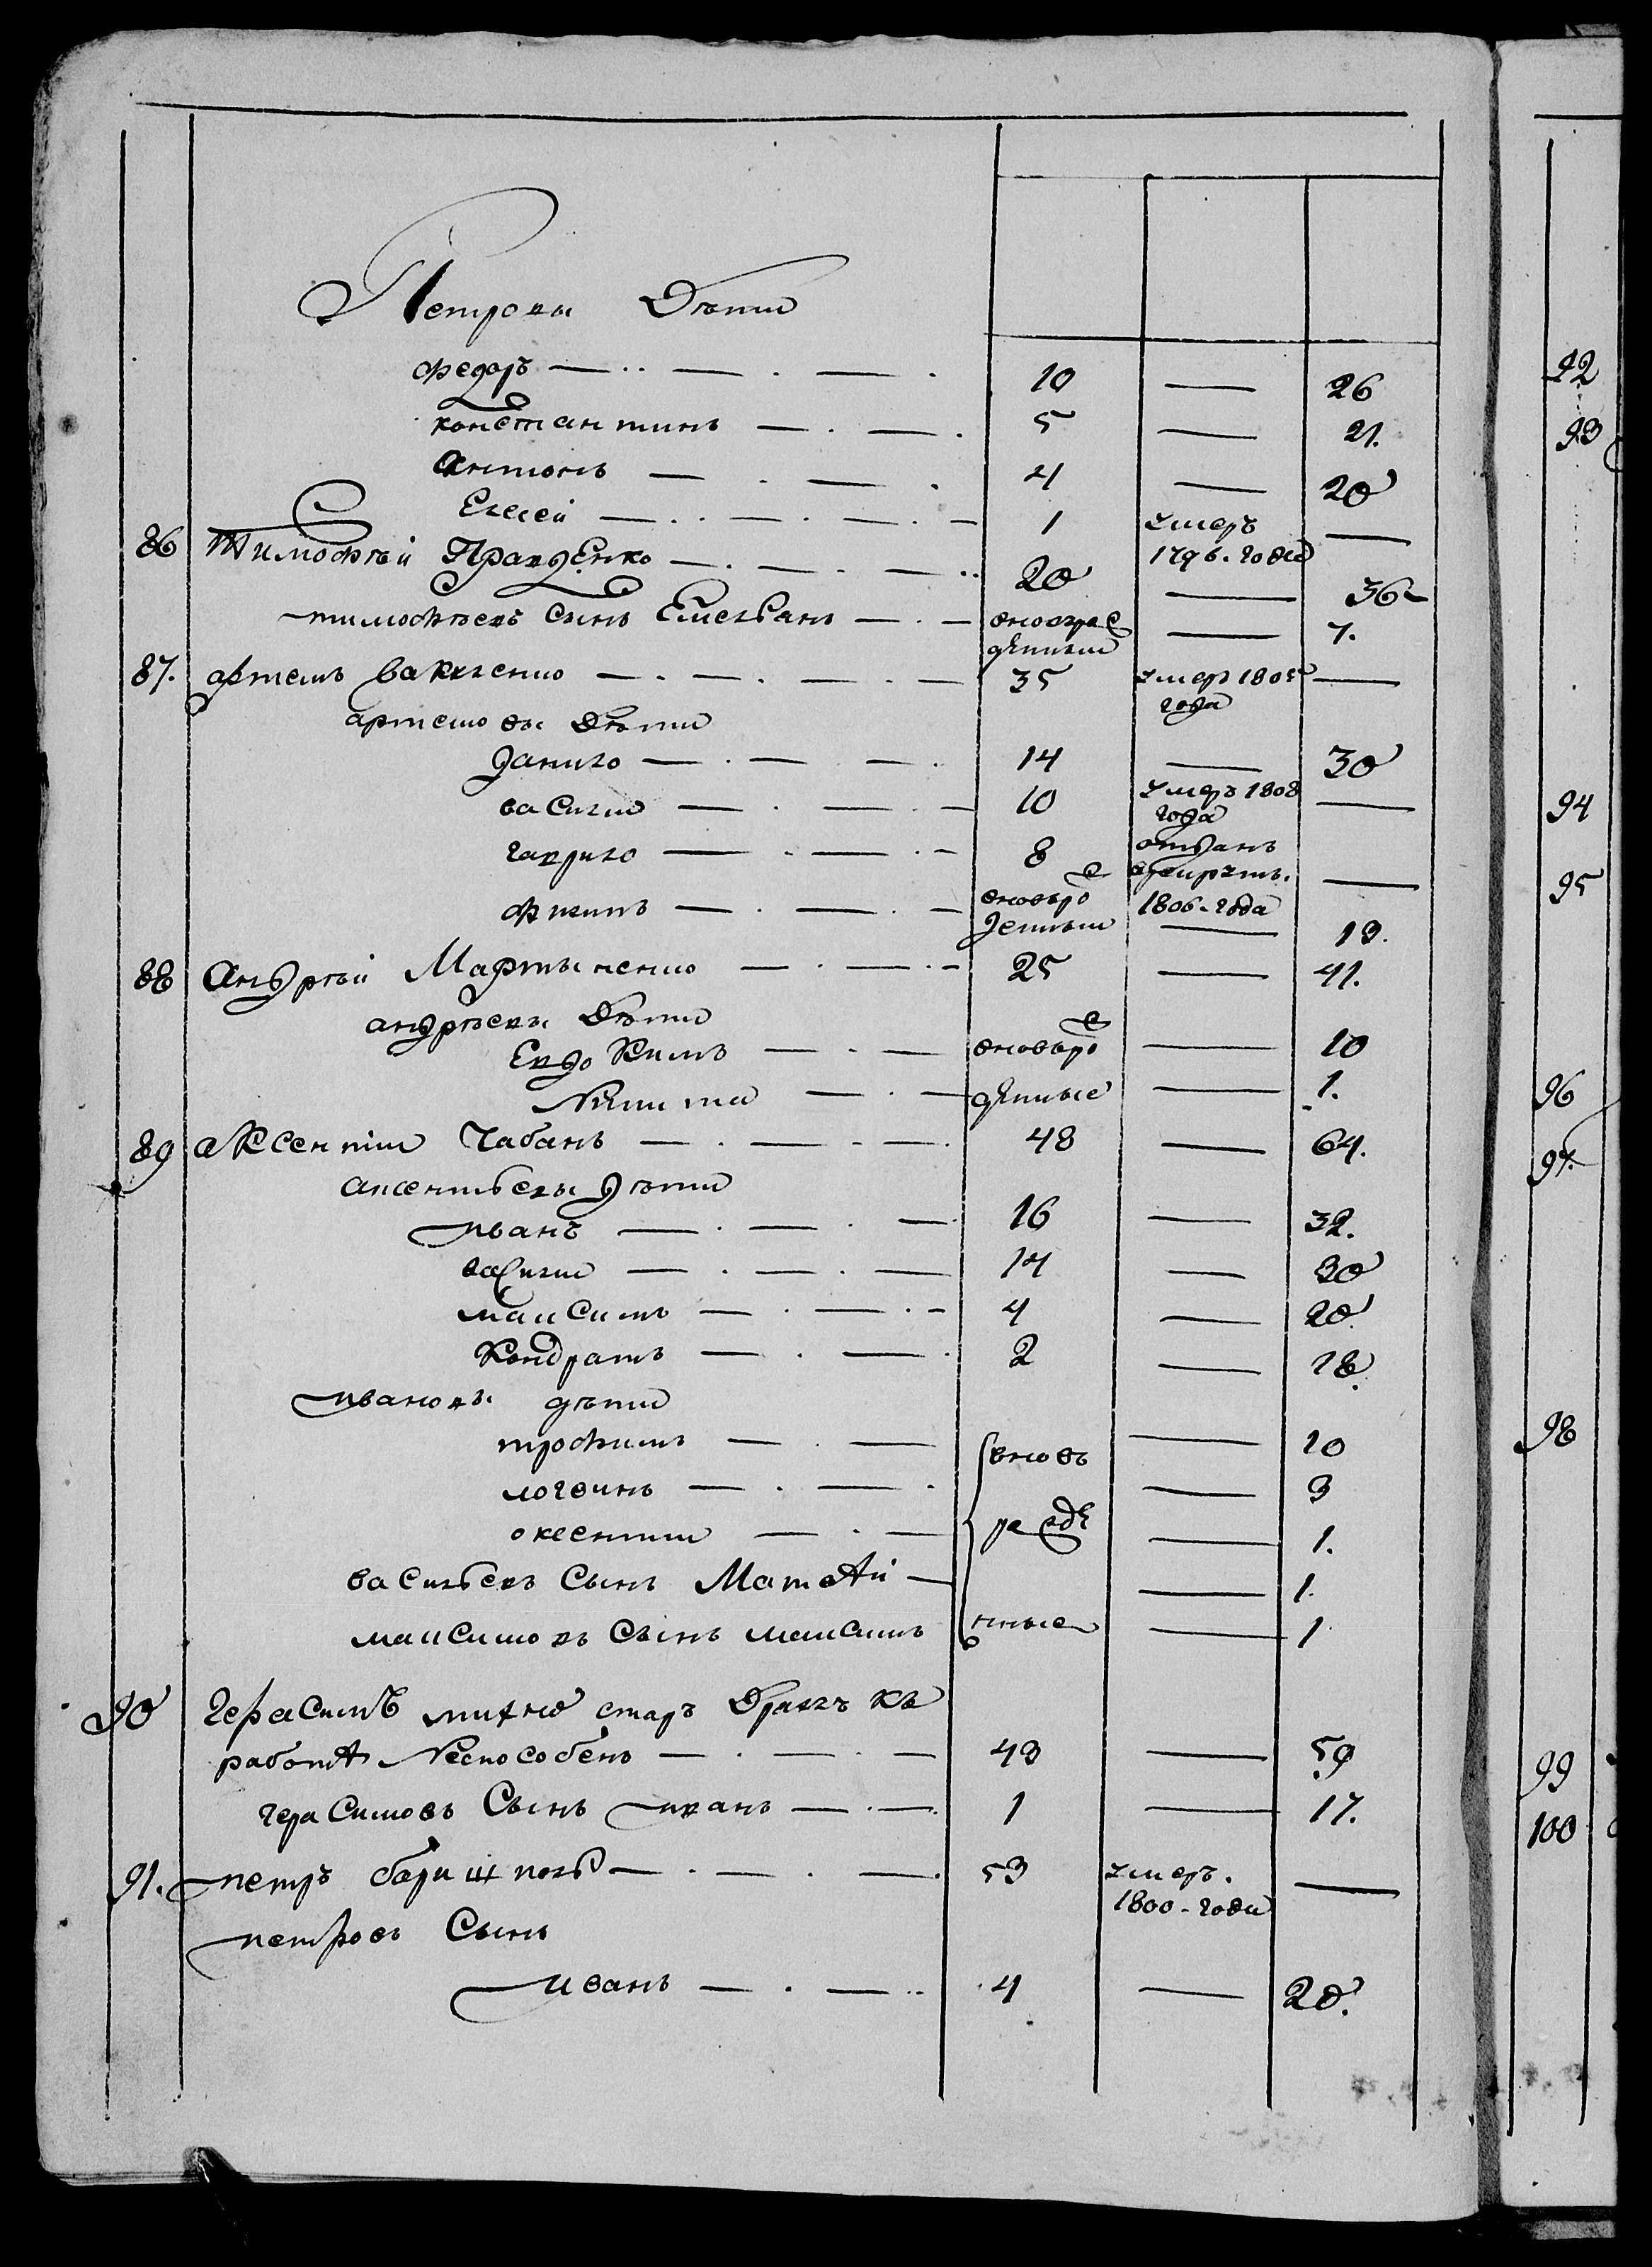 Петровы Дѣти
Федоръ 10 — 26
константинъ 5 — 21.
Антонъ 4 — 20
Елесей 1 умеръ 1796. года —
86 Тимофѣй Правденко 20 — 36
тимофѣевъ сынъ Емельянъ вновърожденный — 7.
87. артемъ вакуленко 35 умеръ 1805 года —
артемовы Дѣти
данило 14 — 30
василии 10 умеръ 1808 года —
гаврило 8 отданъ 1806. года —
вновьрожденныи — 13.
88 Андрѣй Мартыненко 25 — 41.
андрѣевы Дѣти
Евдокимъ вновьро — 10
Никита жденные — 1.
89 аксентии Чабанъ 48 — 64.
аксентьевы дѣти
иванъ 16 — 32.
василии 14 — 30
максимъ 4 — 20.
Кондратъ 2 — 18.
ивановы дѣти
трофимъ вновь — 10
логвинъ — 3
оксентии рожде — 1.
васильевъ сынъ Матвѣй — 1.
максимовъ сынъ максимъ нные — 1
90 Герасимъ старъ Дряхлъ къ
работѣ неспособенъ 43 — 59
герасимовъ Сынъ иванъ 1 — 17.
91. петръ 53 умеръ. 1800. года —
петровъ Сынъ
иванъ 4 — 20.
92
93
94
95
96
97.
98
99
100